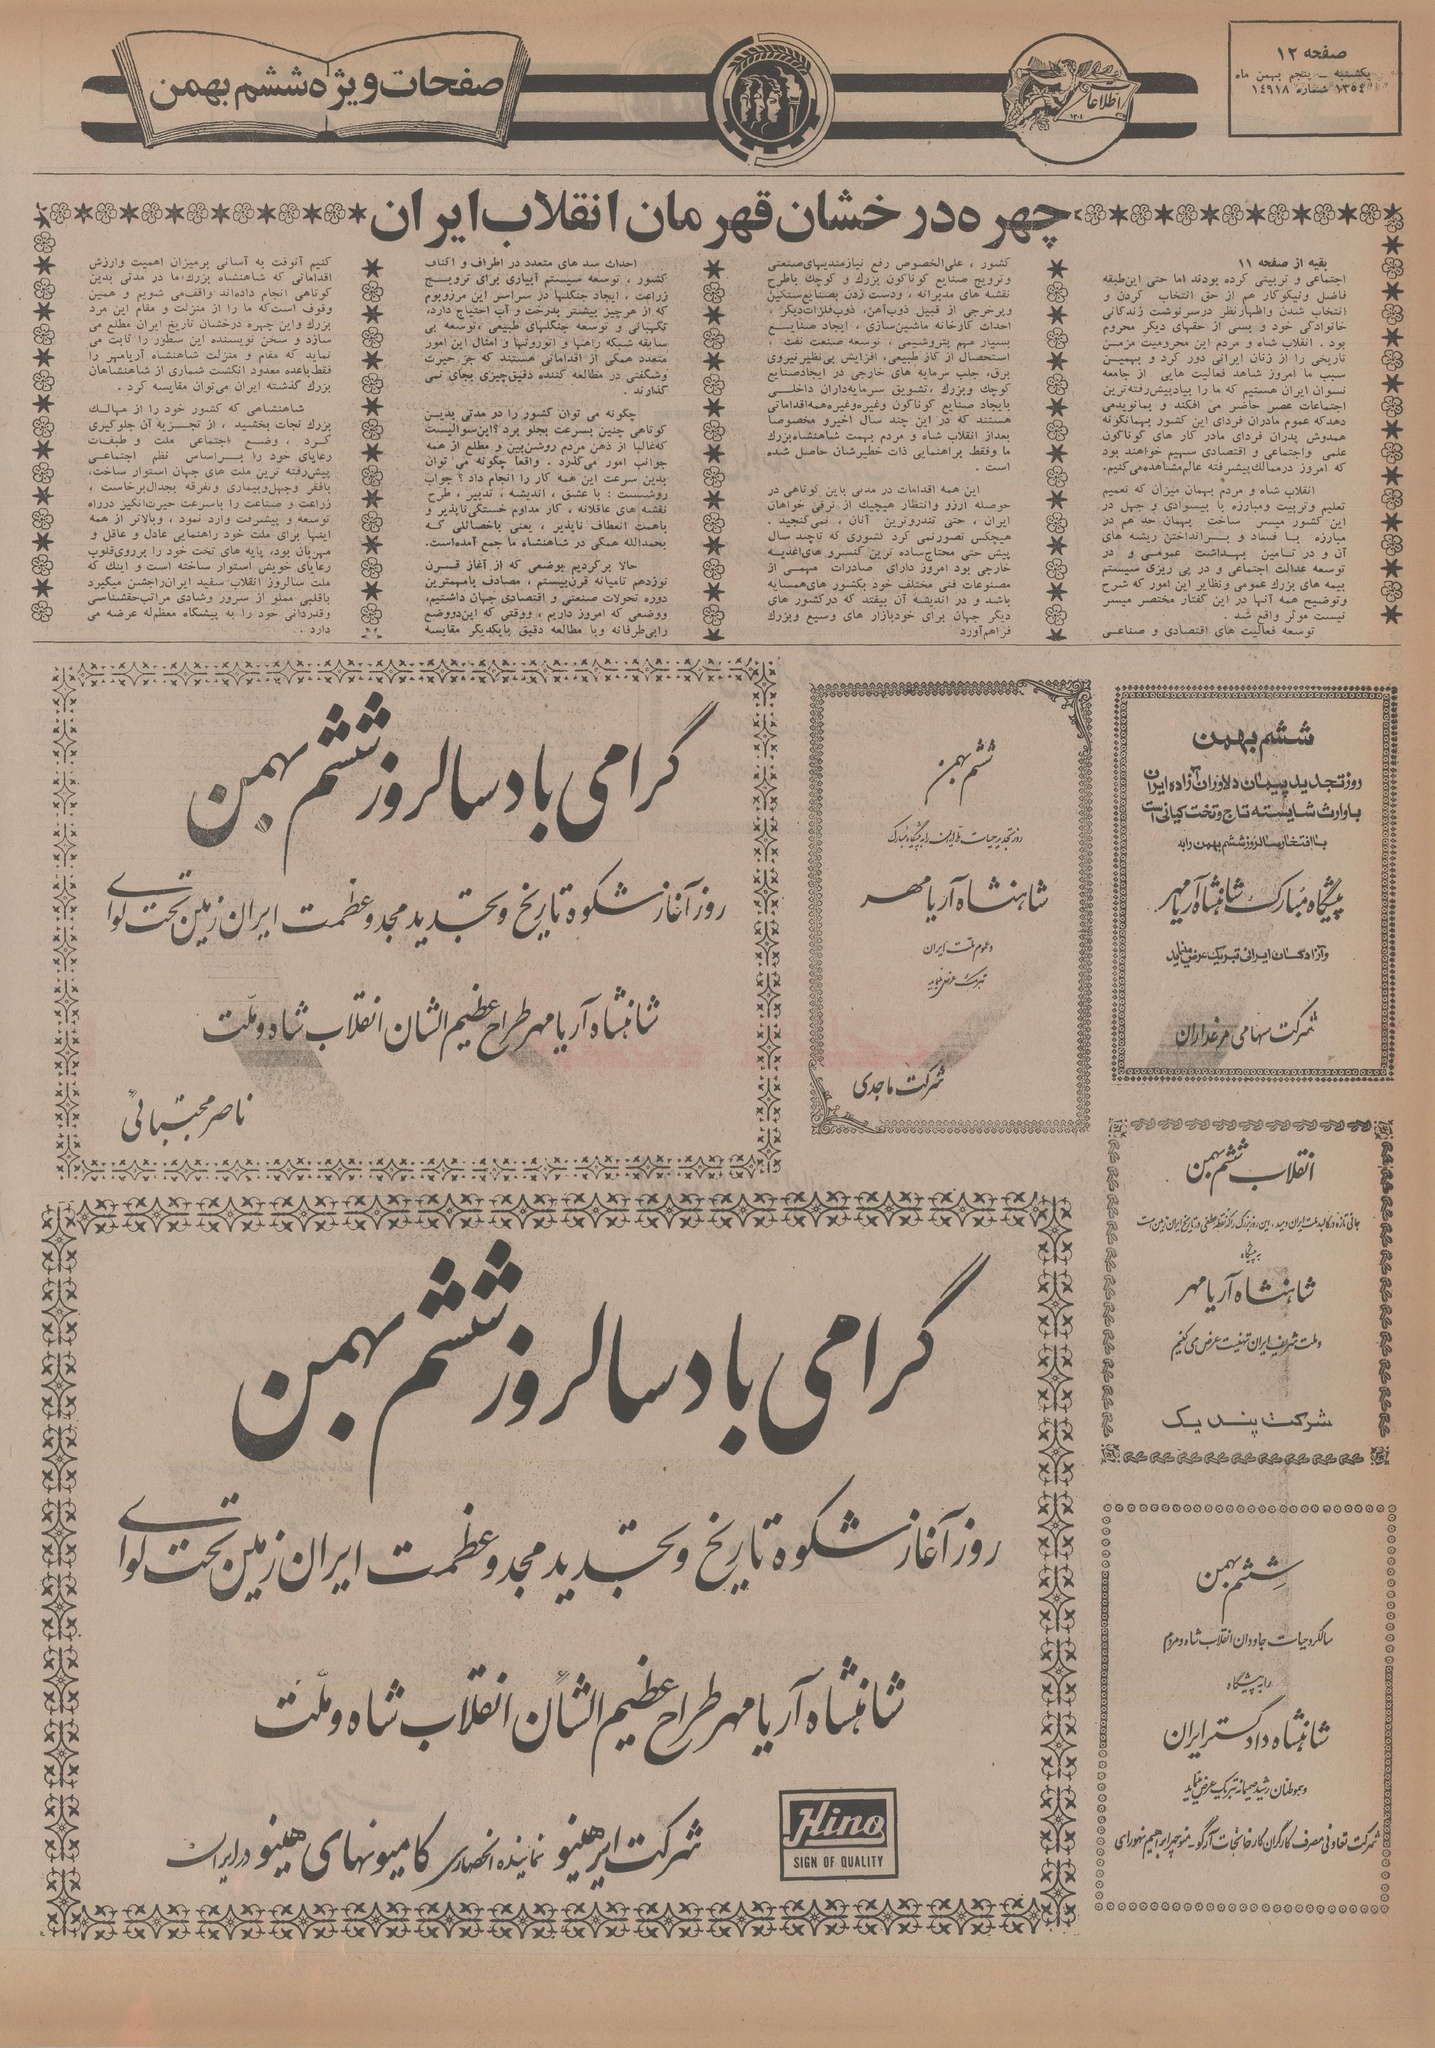 صفحه ۱۲
یکشنبه – پنجم بهمن ماه
۱۳۵۴ شماره ۱۴۹۱۸
اطلاعات
صفحات ویژه ششم بهمن
چهره درخشان قهرمان انقلاب ایران
بقیه از صفحه ۱۱
اجتماعی و تربیتی کرده بودند اما حتی این طبقه
فاضل ونیکوکار هم از حق انتخاب کردن و
انتخاب شدن واظهارنظر درسرنوشت زندگانی
خانوادگی خود و بسی از حقهای دیگر محروم
بود . انقلاب شاه و مردم این محرومیت مزمن
تاریخی را از زنان ایرانی دور کرد و بهمین
سبب ما امروز شاهد فعالیت هایی از جامعه
نسوان ایران هستیم که ما را بیادپیش‌رفته‌ترین
اجتماعات عصر حاضر می افکند و بمانویدمی
دهدکه عموم مادران فردای این کشور بهمانگونه
همدوش پدران فردای مادر کار های گوناگون
علمی واجتماعی و اقتصادی سهیم خواهند بود
که امروز درممالک‌پیشرفته عالم‌مشاهده‌می‌کنیم.
انقلاب شاه و مردم بهمان میزان که تعمیم
تعلیم وتربیت ومبارزه با بیسوادی و جهل در
این کشور میسر ساخت بهمان حد هم در
مبارزه با فساد و برانداختن ریشه های
آن و در تامین بهداشت عمومی و در
توسعه عدالت اجتماعی و در پی ریزی سیستم
بیمه های بزرگ عمومی ونظایر این امور که شرح
وتوضیح همه آنها در این گفتار مختصر میسر
نیست موثر واقع شد .
توسعه فعالیت های اقتصادی و صناعی
کشور ، علی‌الخصوص رفع نیازمندیهای‌صنعتی
وترویج صنایع گوناگون بزرگ و کوچک باطرح
نقشه های مدبرانه ، ودست زدن بصنایع‌سنگین
وپرخرجی از قبیل ذوب‌آهن، ذوب‌فلزات‌دیگر .
احداث کارخانه ماشین‌سازی ، ایجاد صنایع
بسیار مهم پتروشیمی ، توسعه صنعت نفت ،
استحصال از گاز طبیعی، افزایش بی‌نظیر نیروی
برق، جلب سرمایه های خارجی در ایجادصنایع
کوچک وبزرگ ، تشویق سرمایه‌داران داخلی
بایجاد صنایع گوناگون وغیره‌وغیره‌همه‌اقداماتی
هستند که در این چند سال اخیرو مخصوصا
بعداز انقلاب شاه و مردم بهمت شاهنشاه‌بزرگ
ما وفقط براهنمایی ذات خطیرشان حاصل شده
است .
این همه اقدامات در مدتی باین کوتاهی در
حوصله ارزو وانتظار هیچیک از ترقی خواهان
ایران ، حتی تندروترین آنان ، نمی‌گنجید .
هیچکس تصورنمی کرد کشوری که تاچند سال
پیش حتی محتاج‌ساده ترین کنسرو های‌اغذیه
خارجی بود امروز دارای صادرات مهمی از
مصنوعات فنی مختلف خود بکشور های‌همسایه
باشد و در اندیشه آن بیفتد که‌درکشور های
دیگر جهان برای خودبازار های وسیع وبزرگ
فراهم‌آورد
احداث سد های متعدد در اطراف و اکناف
کشور ، توسعه سیستم آبیاری برای ترویج
زراعت ، ایجاد جنگلها در سراسر این مرزوبوم
که از هرچیز بیشتر بدرخت و آب احتیاج دارد،
نگهبانی و توسعه جنگلهای طبیعی، توسعه بی
سابقه شبکه راهها و اتوروتها و امثال این امور
متعدد همگی از اقداماتی هستند که جز حیرت
وشگفتی در مطالعه کننده دقیق‌چیزی بجای نمی
گذارند .
چگونه می توان کشور را در مدتی بدین
کوتاهی چنین بسرعت بجلو برد؟ این‌سوالیست
که‌غالبا از ذهن مردم روشن‌بین و مطلع از همه
جوانب امور می‌گذرد . واقعا چگونه می توان
بدین سرعت این همه کار را انجام داد ؟ جواب
روشنست : با عشق ، اندیشه ، تدبیر ، طرح
نقشه های عاقلانه ، کار مداوم خستگی‌ناپذیر و
باهمت انعطاف ناپذیر ، یعنی باخصائلی که
بحمدالله همگی در شاهنشاه ما جمع آمده‌است.
حالا برگردیم بوضعی که از آغاز قرن
نوزدهم تامیانه قرن‌بیستم ، مصادف بامهمترین
دوره تحولات صنعتی و اقتصادی جهان داشتیم،
ووضعی که امروز داریم ، ووقتی که این‌دووضع
رابی‌طرفانه وبا مطالعه دقیق بایکدیگر مقایسه
کنیم آنوقت به آسانی برمیزان اهمیت وارزش
اقداماتی که شاهنشاه بزرگ ما در مدتی بدین
کوتاهی انجام داده‌اند واقف‌می شویم و همین
وقوف است‌که ما را از منزلت و مقام این مرد
بزرگ واین چهره درخشان تاریخ ایران مطلع می
سازد و سخن نویسنده این سطور را ثابت می
نماید که مقام و منزلت شاهنشاه آریامهر را
فقط‌باعده معدود انگشت شماری از شاهنشاهان
بزرگ گذشته ایران می‌توان مقایسه کرد .
شاهنشاهی که کشور خود را از مهالک
بزرگ نجات بخشید ، از تجزیه آن جلوگیری
کرد ، وضع اجتماعی ملت و طبقات
رعایای خود را براساس نظم اجتماعی
پیش‌رفته ترین ملت های جهان استوار ساخت،
بافقر وجهل‌وبیماری وتفرقه بجدال‌برخاست ،
زراعت و صناعت را باسرعت حیرت‌انگیز درراه
توسعه و پیشرفت وارد نمود ، وبالاتر از همه
اینها برای ملت خود راهنمایی عادل و عاقل و
مهربان بود، پایه های تخت خود را برروی‌قلوب
رعایای خویش استوار ساخته است و اینک که
ملت سالروز انقلاب سفید ایران‌راجشن میگیرد
باقلبی مملو از سرور وشادی مراتب‌حقشناسی
وقدردانی خود را به پیشگاه معظم‌له عرضه می
دارد . .
ششم بهمن
روز تجدید پیمان دلاوران آزاده ایران
با وارث شایسته تاج و تخت کیانی است
با افتخار سالروز ششم بهمن را به
پیشگاه مبارک شاهنشاه آریامهر
و آزادگان ایرانی تبریک عرض مینماید
شرکت سهامی مرغداران
ششم بهمن
روز تجدید حیات ملی ایران را به پیشگاه مبارک
شاهنشاه آریامهر
و عموم ملت ایران
تبریک عرض مینماید
شرکت ماجدی
گرامی باد سالروز ششم بهمن
روز آغاز شکوه تاریخ و تجدید مجد و عظمت ایران زمین تحت لوای
شاهنشاه آریامهر طراح عظیم الشان انقلاب شاه و ملت
ناصر مجتبائی
انقلاب ششم بهمن
جانی تازه در کالبد ملت ایران دمید، این روز بزرگ را که نقطه عطفی در تاریخ ایران زمین است
به پیشگاه
شاهنشاه آریامهر
و ملت شریف ایران تهنیت عرض می کنیم
شرکت پند یک
گرامی باد سالروز ششم بهمن
روز آغاز شکوه تاریخ و تجدید مجد و عظمت ایران زمین تحت لوای
شاهنشاه آریامهر طراح عظیم الشأن انقلاب شاه و ملت
Hino
SIGN OF QUALITY
شرکت ایرهینو نماینده انحصاری کامیونهای هینو در ایران
ششم بهمن
سالگرد حیات جاودان انقلاب شاه و مردم
را به پیشگاه
شاهنشاه دادگستر ایران
و هموطنان رشید صمیمانه تبریک عرض مینماید
شرکت تعاونی مصرف کارگران کارخانجات آرگو - منوچهر ابراهیم